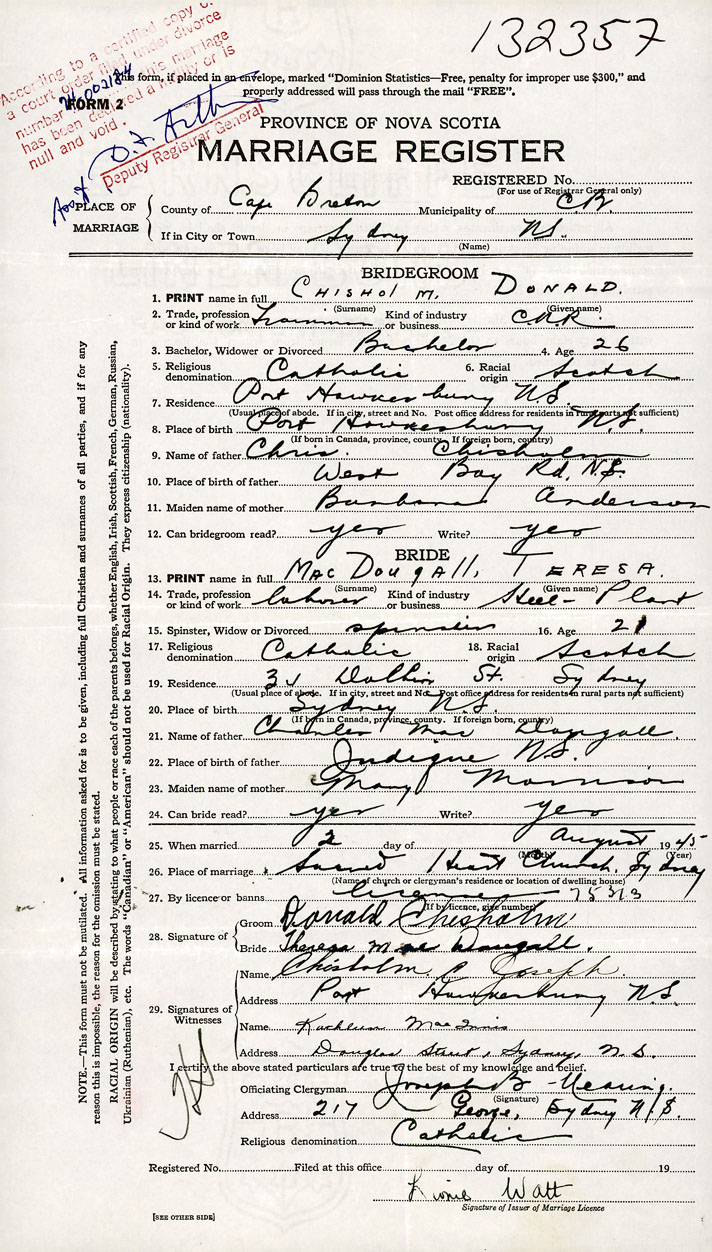 132357
According to a certified copy of
a court order filed under divorce
number this marriage
has been declared a nullity or is
null and void.
Deputy Registrar General
This form, if placed in an envelope, marked "Dominion Statistics—Free, penalty for improper use $300," and
properly addressed will pass through the mail "FREE".
FORM 2
PROVINCE OF NOVA SCOTIA
MARRIAGE REGISTER
REGISTERED No.
(For use of Registrar General only)
PLACE OF MARRIAGE
County of Cape Breton Municipality of C.B.
If in City or Town Sydney N.S.
(Name)
BRIDEGROOM
1. PRINT name in full CHISHOLM, DONALD.
(Surname) (Given name)
2. Trade, profession or kind of work Trainman Kind of industry or business C.N.R.
3. Bachelor, Widower or Divorced Bachelor 4. Age 26
5. Religious denomination Catholic 6. Racial origin Scotch
7. Residence Port Hawkesbury N.S.
(Usual place of abode. If in city, street and No. Post office address for residents in rural parts not sufficient)
8. Place of birth Port Hawkesbury N.S.
(If born in Canada, province, county. If foreign born, country)
9. Name of father Chris. Chisholm
10. Place of birth of father West Bay Rd, N.S.
11. Maiden name of mother Barbara Anderson
12. Can bridegroom read? yes Write? yes
BRIDE
13. PRINT name in full MacDougall, TERESA.
(Surname) (Given name)
14. Trade, profession or kind of work laborer Kind of industry or business Steel-Plant
15. Spinster, Widow or Divorced spinster 16. Age 21
17. Religious denomination Catholic 18. Racial origin Scotch
19. Residence St. Sydney
(Usual place of abode. If in city, street and No. Post office address for residents in rural parts not sufficient)
20. Place of birth Sydney N.S.
(If born in Canada, province, county. If foreign born, country)
21. Name of father Charles MacDougall.
22. Place of birth of father Judique N.S.
23. Maiden name of mother Mary Morrison
24. Can bride read? yes Write? yes
25. When married 2 day of August 1945
(Month) (Year)
26. Place of marriage Sacred Heart Church, Sydney
(Name of church or clergyman's residence or location of dwelling house)
27. By licence or banns licence 75313
(If by licence, give number)
28. Signature of
Groom Donald Chisholm
Bride Theresa MacDougall.
29. Signatures of Witnesses
Name Chisholm C Joseph.
Address Port Hawkesbury N.S.
Name Kathleen MacInnis
Address Douglas Street, Sydney, N.S.
I certify the above stated particulars are true to the best of my knowledge and belief.
Officiating Clergyman Joseph B. Nearing.
(Signature)
Address 217 George, Sydney N.S.
Religious denomination Catholic
Registered No. Filed at this office day of 19
Watt
Signature of Issuer of Marriage Licence
[SEE OTHER SIDE]
NOTE.—This form must not be mutilated. All information asked for is to be given, including full Christian and surnames of all parties, and if for any
reason this is impossible, the reason for the omission must be stated.
RACIAL ORIGIN will be described by stating to what people or race each of the parents belongs, whether English, Irish, Scottish, French, German, Russian,
Ukrainian (Ruthenian), etc. The words "Canadian" or "American" should not be used for Racial Origin. They express citizenship (nationality).